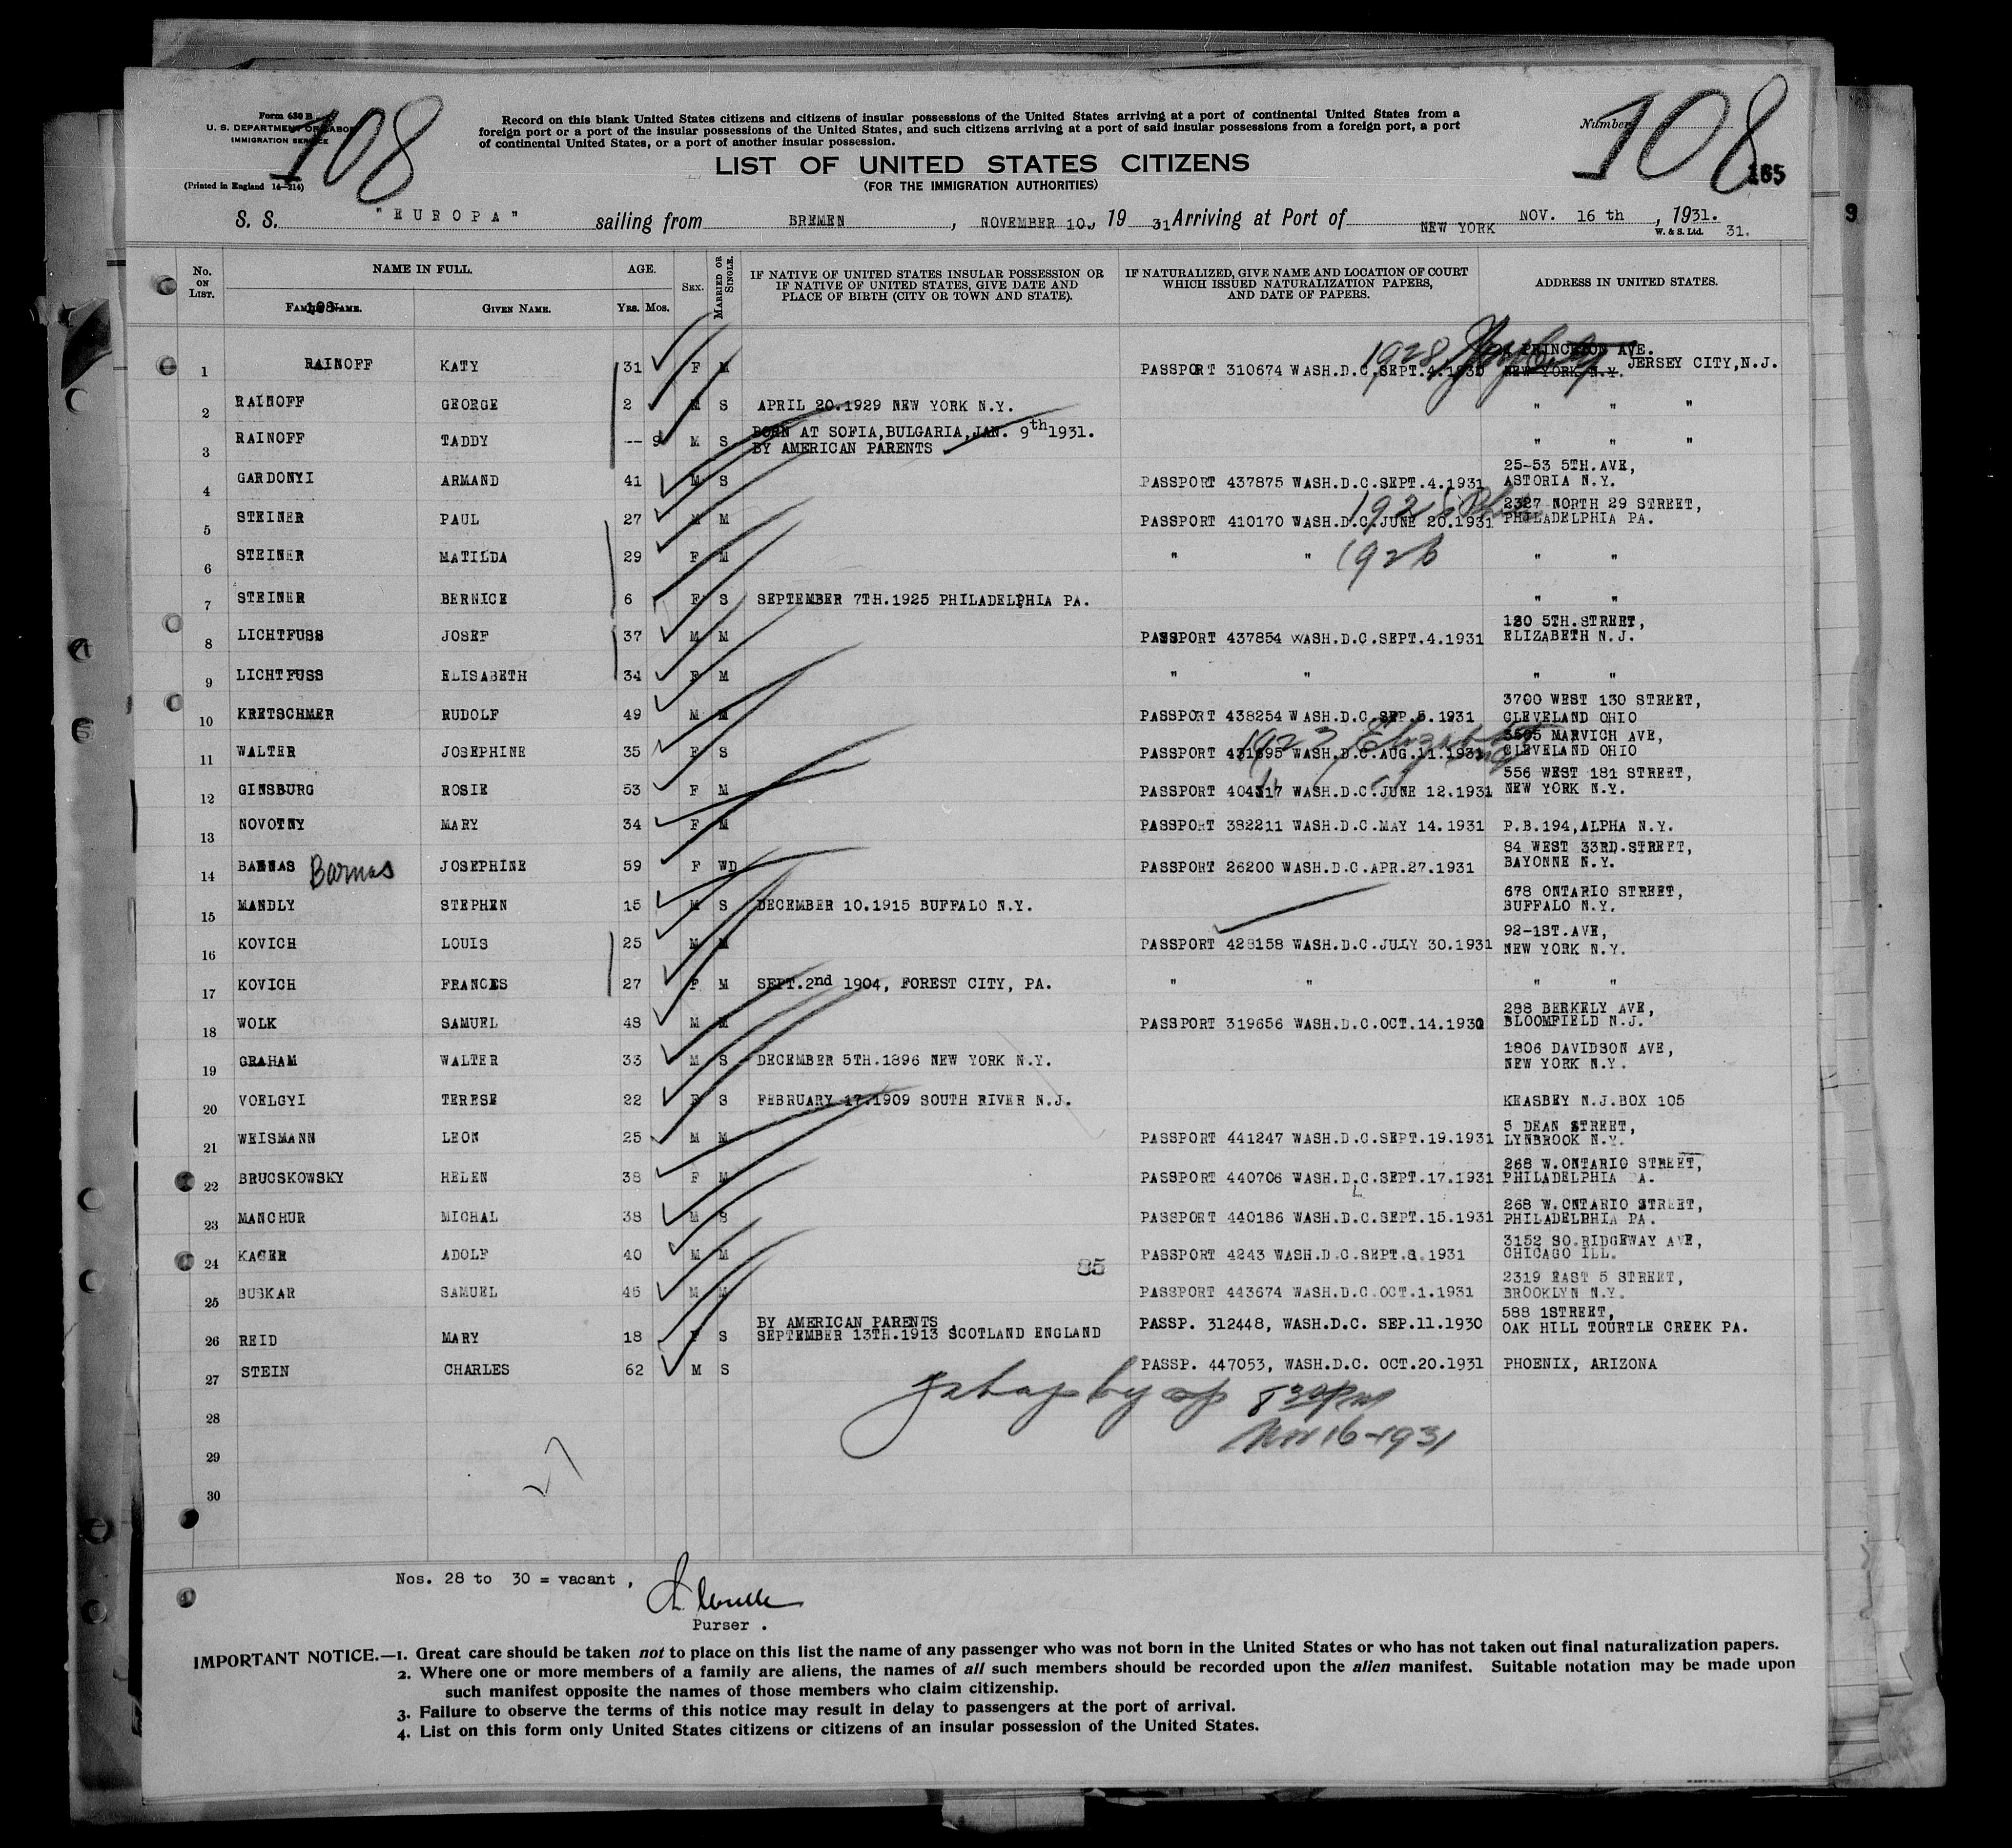 108
108
Form 630 B
U. S. DEPARTMENT OF LABOR
IMMIGRATION SERVICE
(Printed in England 14—214)
Record on this blank United States citizens and citizens of insular possessions of the United States arriving at a port of continental United States from a
foreign port or a port of the insular possessions of the United States, and such citizens arriving at a port of said insular possessions from a foreign port, a port
of continental United States, or a port of another insular possession.
Number
165
LIST OF UNITED STATES CITIZENS
(FOR THE IMMIGRATION AUTHORITIES)
S. S. "EUROPA" sailing from BREMEN, NOVEMBER 10., 19 31 Arriving at Port of NEW YORK NOV. 16 th, 1931.
W. & S. Ltd. 31.
9
No. ON LIST. NAME IN FULL. AGE. SEX. MARRIED OR SINGLE. IF NATIVE OF UNITED STATES INSULAR POSSESSION OR IF NATIVE OF UNITED STATES, GIVE DATE AND PLACE OF BIRTH (CITY OR TOWN AND STATE). IF NATURALIZED, GIVE NAME AND LOCATION OF COURT WHICH ISSUED NATURALIZATION PAPERS, AND DATE OF PAPERS. ADDRESS IN UNITED STATES.
FAMILY NAME. 108 GIVEN NAME. YRS. MOS.
1 RAINOFF KATY 31 F M PASSPORT 310674 WASH.D.C.SEPT.4.1930 1928 PRINCETON AVE. NEW YORK N.Y. JERSEY CITY,N.J.
2 RAINOFF GEORGE 2 M S APRIL 20.1929 NEW YORK N.Y. " " "
3 RAINOFF TADDY -- 9 M S BORN AT SOFIA,BULGARIA,JAN. 9th 1931. BY AMERICAN PARENTS " " "
4 GARDONYI ARMAND 41 M S PASSPORT 437875 WASH.D.C.SEPT.4.1931 25-53 5TH.AVE, ASTORIA N.Y.
5 STEINER PAUL 27 M M PASSPORT 410170 WASH.D.C.JUNE 20.1931 2327 NORTH 29 STREET, PHILADELPHIA PA.
6 STEINER MATILDA 29 F M " " 1926 " "
7 STEINER BERNICE 6 F S SEPTEMBER 7TH.1925 PHILADELPHIA PA. " "
8 LICHTFUSS JOSEF 37 M M PASSPORT 437854 WASH.D.C.SEPT.4.1931 120 5TH.STREET, ELIZABETH N.J.
9 LICHTFUSS ELISABETH 34 F M " " " "
10 KRETSCHMER RUDOLF 49 M M PASSPORT 438254 WASH.D.C.SEP.5.1931 3700 WEST 130 STREET, CLEVELAND OHIO
11 WALTER JOSEPHINE 35 F S PASSPORT 431695 WASH.D.C.AUG.11.1931 1927 Elizabeth 3505 MARVICH AVE, CLEVELAND OHIO
12 GINSBURG ROSIE 53 F M PASSPORT 404317 WASH.D.C.JUNE 12.1931 556 WEST 181 STREET, NEW YORK N.Y.
13 NOVOTNY MARY 34 F M PASSPORT 382211 WASH.D.C.MAY 14.1931 P.B.194,ALPHA N.Y.
14 BARNAS Barnas JOSEPHINE 59 F WD PASSPORT 26200 WASH.D.C.APR.27.1931 84 WEST 33RD.STREET, BAYONNE N.Y.
15 MANDLY STEPHEN 15 M S DECEMBER 10.1915 BUFFALO N.Y. 678 ONTARIO STREET, BUFFALO N.Y.
16 KOVICH LOUIS 25 M M PASSPORT 428158 WASH.D.C.JULY 30.1931 92-1ST.AVE, NEW YORK N.Y.
17 KOVICH FRANCES 27 F M SEPT.2nd 1904, FOREST CITY, PA. " " " "
18 WOLK SAMUEL 48 M M PASSPORT 319656 WASH.D.C.OCT.14.1930 288 BERKELY AVE, BLOOMFIELD N.J.
19 GRAHAM WALTER 33 M S DECEMBER 5TH.1896 NEW YORK N.Y. 1806 DAVIDSON AVE, NEW YORK N.Y.
20 VOELGYI TERESE 22 F S FEBRUARY 17.1909 SOUTH RIVER N.J. KEASBEY N.J.BOX 105
21 WEISMANN LEON 25 M M PASSPORT 441247 WASH.D.C.SEPT.19.1931 5 DEAN STREET, LYNBROOK N.Y.
22 BRUCSKOWSKY HELEN 38 F M PASSPORT 440706 WASH.D.C.SEPT.17.1931 268 W.ONTARIO STREET, PHILADELPHIA A.
23 MANCHUR MICHAL 38 M S PASSPORT 440186 WASH.D.C.SEPT.15.1931 268 W.ONTARIO STREET, PHILADELPHIA PA.
24 KAGER ADOLF 40 M M PASSPORT 4243 WASH.D.C.SEPT.8.1931 3152 SO.RIDGEWAY AVE, CHICAGO ILL.
85
25 BUSKAR SAMUEL 46 M M PASSPORT 443674 WASH.D.C.OCT.1.1931 2319 EAST 5 STREET, BROOKLYN N.Y.
26 REID MARY 18 F S BY AMERICAN PARENTS SEPTEMBER 13TH.1913 SCOTLAND ENGLAND PASSP. 312448, WASH.D.C. SEP.11.1930 588 1STREET, OAK HILL TOURTLE CREEK PA.
27 STEIN CHARLES 62 M S PASSP. 447053, WASH.D.C. OCT.20.1931 PHOENIX, ARIZONA
28
830 PM
29 Nov 16-1931
30
Nos. 28 to 30 = vacant,
Purser .
IMPORTANT NOTICE.—1. Great care should be taken not to place on this list the name of any passenger who was not born in the United States or who has not taken out final naturalization papers.
2. Where one or more members of a family are aliens, the names of all such members should be recorded upon the alien manifest. Suitable notation may be made upon
such manifest opposite the names of those members who claim citizenship.
3. Failure to observe the terms of this notice may result in delay to passengers at the port of arrival.
4. List on this form only United States citizens or citizens of an insular possession of the United States.